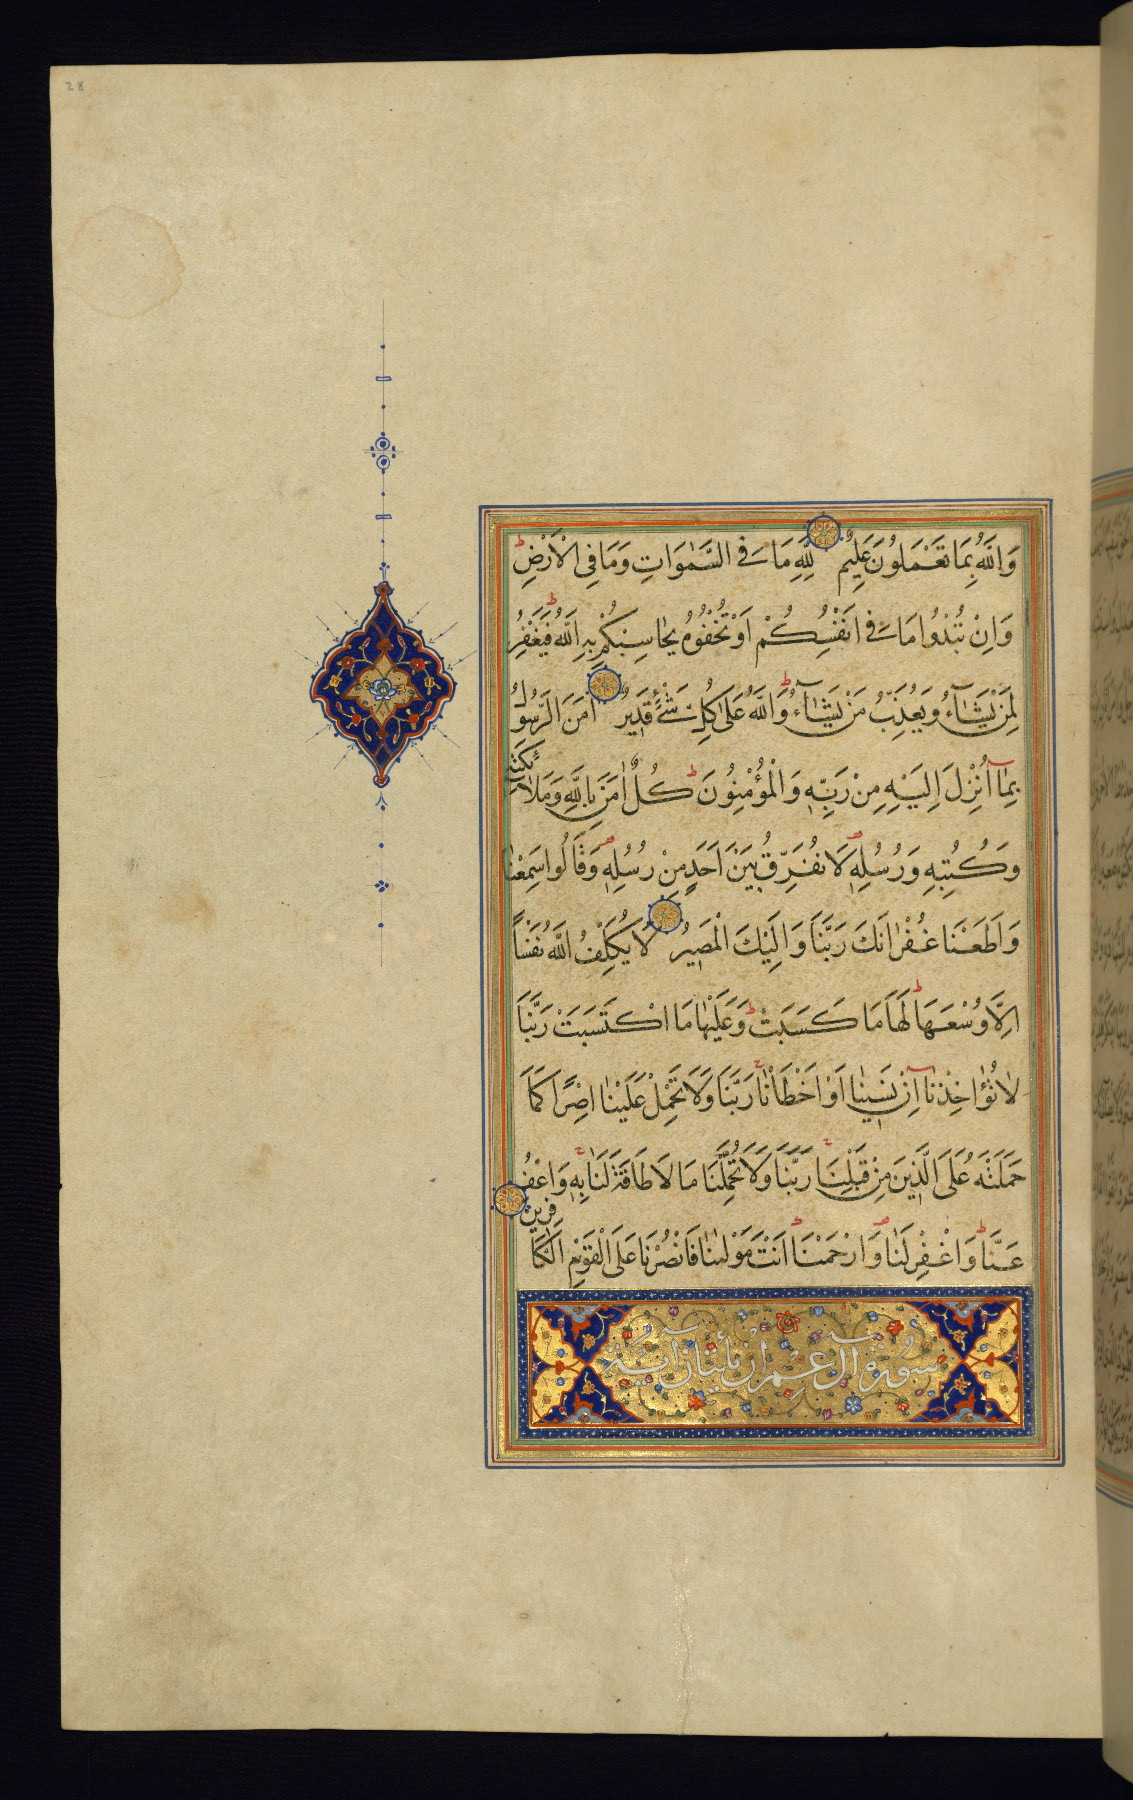 28
وَاللّٰهُ بِمَا تَعْمَلُونَ عَلِيمٌ لِلّٰهِ مَا فِي السَّمٰوَاتِ وَمَا فِي الْاَرْضِ
وَاِنْ تُبْدُوا مَا فِي اَنْفُسِكُمْ اَوْ تُخْفُوهُ يُحَاسِبْكُمْ بِهِ اللّٰهُ فَيَغْفِرُ
لِمَنْ يَشَآءُ وَيُعَذِّبُ مَنْ يَشَآءُ وَاللّٰهُ عَلٰى كُلِّ شَيْءٍ قَدِيرٌ اٰمَنَ الرَّسُولُ
بِمَآ اُنْزِلَ اِلَيْهِ مِنْ رَبِّهٖ وَالْمُؤْمِنُونَ كُلٌّ اٰمَنَ بِاللّٰهِ وَمَلٰئِكَتِهٖ
وَكُتُبِهٖ وَرُسُلِهٖ لَا نُفَرِّقُ بَيْنَ اَحَدٍ مِنْ رُسُلِهٖ وَقَالُوا سَمِعْنَا
وَاَطَعْنَا غُفْرَانَكَ رَبَّنَا وَاِلَيْكَ الْمَصِيرُ لَا يُكَلِّفُ اللّٰهُ نَفْسًا
اِلَّا وُسْعَهَا لَهَا مَا كَسَبَتْ وَعَلَيْهَا مَا اكْتَسَبَتْ رَبَّنَا
لَا تُؤَاخِذْنَآ اِنْ نَسِينَا اَوْ اَخْطَاْنَا رَبَّنَا وَلَا تَحْمِلْ عَلَيْنَا اِصْرًا كَمَا
حَمَلْتَهُ عَلَى الَّذِينَ مِنْ قَبْلِنَا رَبَّنَا وَلَا تُحَمِّلْنَا مَا لَا طَاقَةَ لَنَا بِهٖ وَاعْفُ
عَنَّا وَاغْفِرْ لَنَا وَارْحَمْنَا اَنْتَ مَوْلٰىنَا فَانْصُرْنَا عَلَى الْقَوْمِ الْكَافِرِينَ
سورة آل عمران مأيتان آية